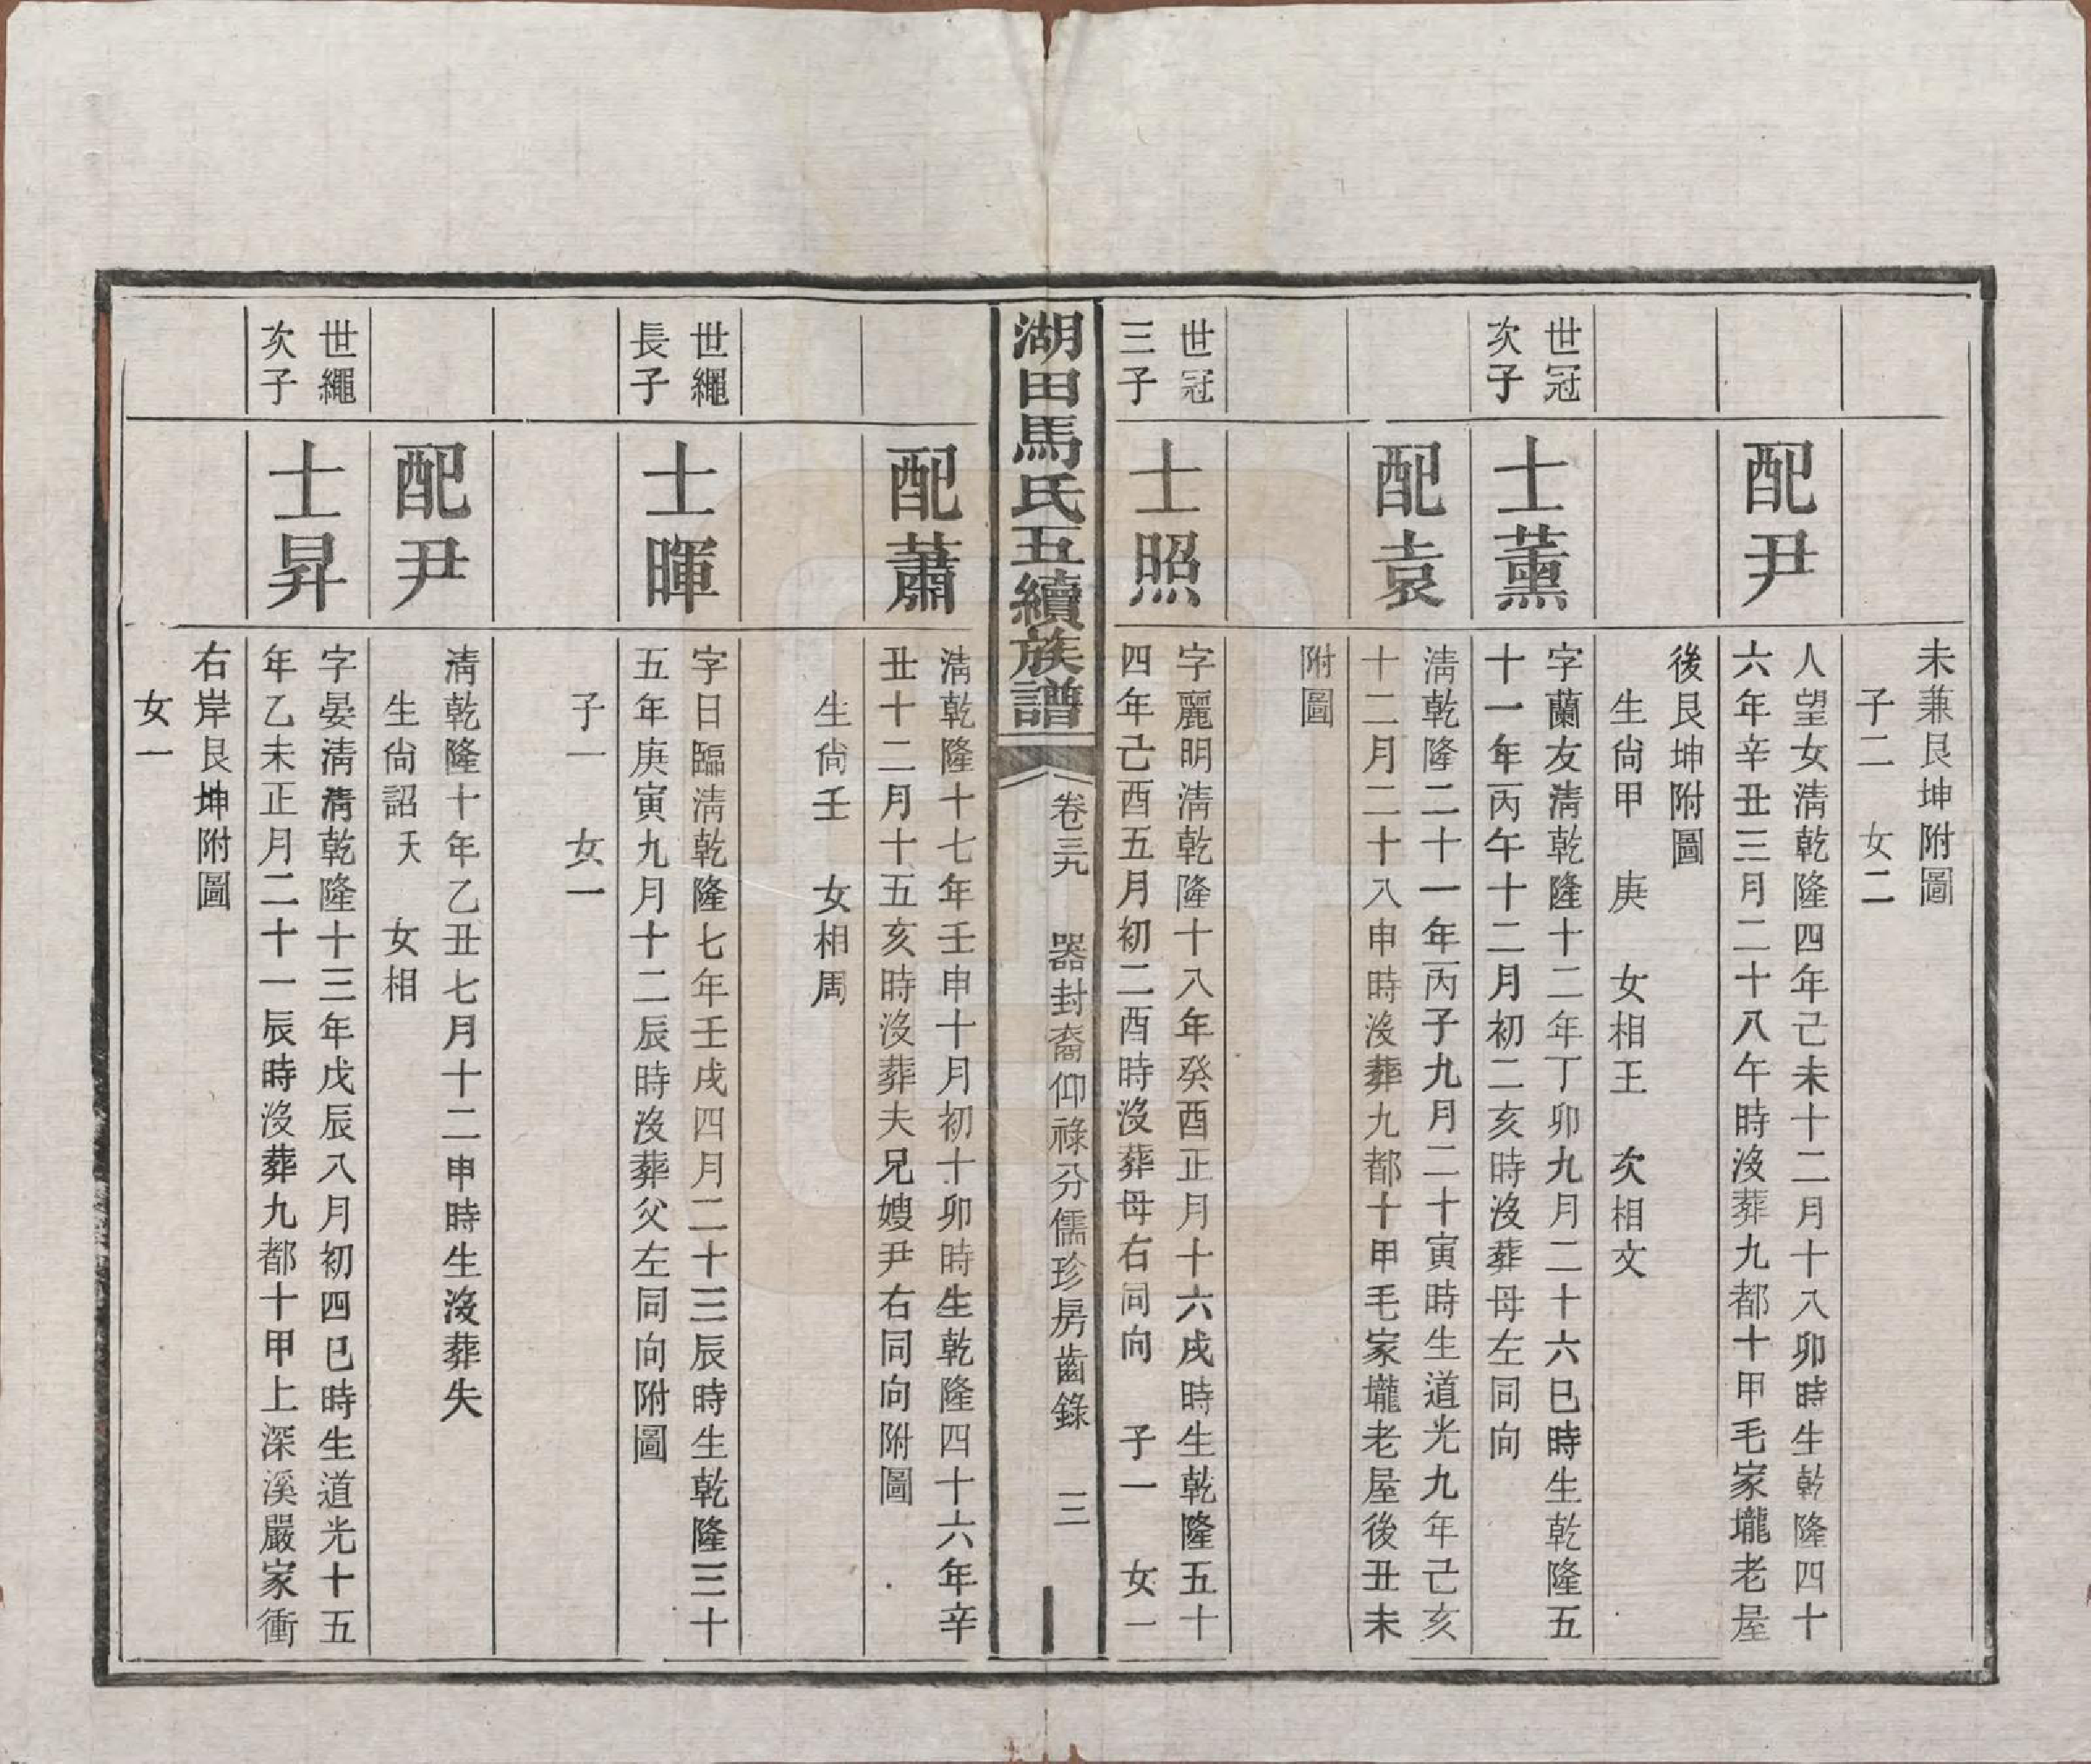 未兼艮坤附圖
子二　女二
配尹
人望女淸乾隆四年己未十二月十八卯時生乾隆四十
六年辛丑三月二十八午時沒葬九都十甲毛家壠老屋
後艮坤附圖
生尙甲　庚　女相王　次相文
世冠
次子
士薰
字蘭友淸乾隆十二年丁卯九月二十六巳時生乾隆五
十一年丙午十二月初二亥時沒葬母左同向
配袁
淸乾隆二十一年丙子九月二十寅時生道光九年己亥
十二月二十八申時沒葬九都十甲毛家壠老屋後丑未
附圖
世冠
三子
士照
字麗明淸乾隆十八年癸酉正月十六戌時生乾隆五十
四年己酉五月初二酉時沒葬母右同向　子一　女一
湖田馬氏五續族譜
卷三九　器封裔仰祿分儒珍房齒錄　三
配蕭
淸乾隆十七年壬申十月初十卯時生乾隆四十六年辛
丑十二月十五亥時沒葬夫兄嫂尹右同向附圖
生尙壬　女相周
世繩
長子
士暉
字日臨淸乾隆七年壬戌四月二十三辰時生乾隆三十
五年庚寅九月十二辰時沒葬父左同向附圖
子一　女一
配尹
淸乾隆十年乙丑七月十二申時生沒葬失
生尙詔　夭　女相
世繩
次子
士昇
字晏淸淸乾隆十三年戊辰八月初四巳時生道光十五
年乙未正月二十一辰時沒葬九都十甲上深溪嚴家衝
右岸艮坤附圖
女一